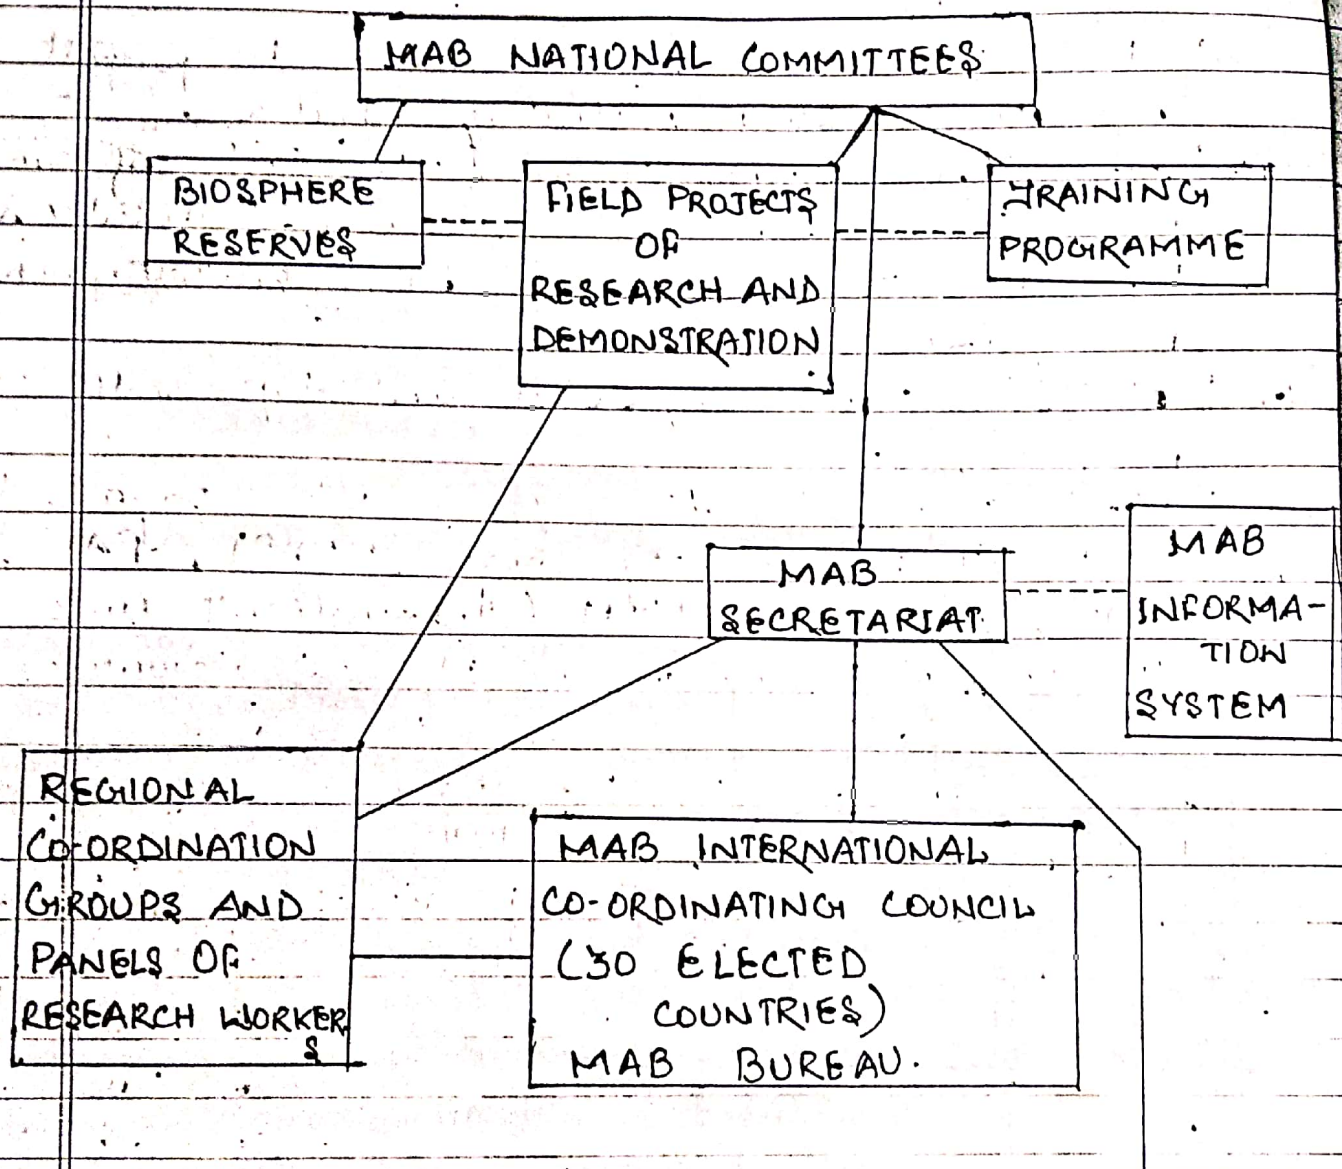 MAB NATIONAL COMMITTEES
BIOSPHERE
RESERVES
FIELD PROJECTS
OF
RESEARCH AND
DEMONSTRATION
TRAINING
PROGRAMME
MAB
SECRETARIAT
MAB
INFORMA-
TION
SYSTEM
REGIONAL
CO-ORDINATION
GROUPS AND
PANELS OF
RESEARCH WORKER
S
MAB INTERNATIONAL
CO-ORDINATING COUNCIL
(30 ELECTED
COUNTRIES)
MAB BUREAU.